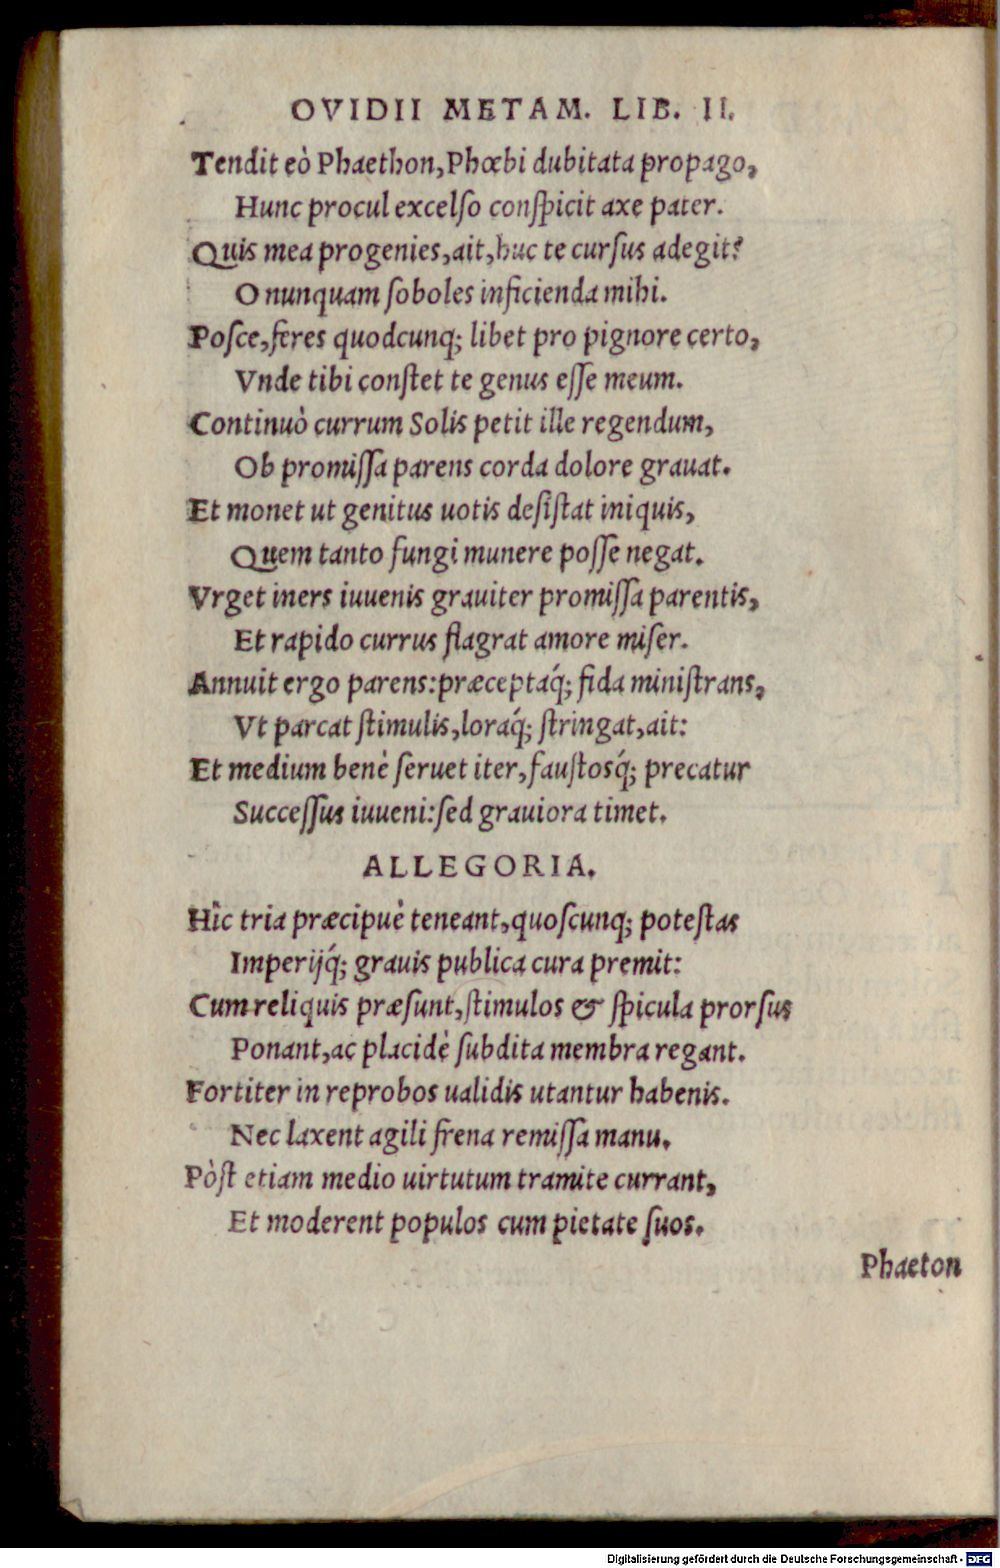 OVIDII METAM. LIB. II.
Tendit eò Phaethon, Phœbi dubitata propago,
Hunc procul excelſo conſpicit axe pater.
Quis mea progenies, ait, huc te curſus adegit?
O nunquam ſoboles inficienda mihi.
Poſce, feres quodcunq; libet pro pignore certo,
Vnde tibi conſtet te genus eſſe meum.
Continuò currum Solis petit ille regendum,
Ob promiſſa parens corda dolore grauat.
Et monet ut genitus uotis deſiſtat iniquis,
Quem tanto fungi munere poſſe negat.
Vrget iners iuuenis grauiter promiſſa parentis,
Et rapido currus flagrat amore miſer.
Annuit ergo parens: præceptaq́; fida miniſtrans,
Vt parcat ſtimulis, loraq́; ſtringat, ait:
Et medium benè ſeruet iter, fauſtosq́; precatur
Succeſſus iuueni: ſed grauiora timet.
ALLEGORIA.
Hîc tria præcipuè teneant, quoſcunq; poteſtas
Imperijq́; grauis publica cura premit:
Cum reliquis præſunt, ſtimulos & ſpicula prorſus
Ponant, ac placidè ſubdita membra regant.
Fortiter in reprobos ualidis utantur habenis.
Nec laxent agili frena remiſſa manu.
Pòſt etiam medio uirtutum tramite currant,
Et moderent populos cum pietate ſuos.
Phaeton
Digitalisierung gefördert durch die Deutsche Forschungsgemeinschaft - DFG